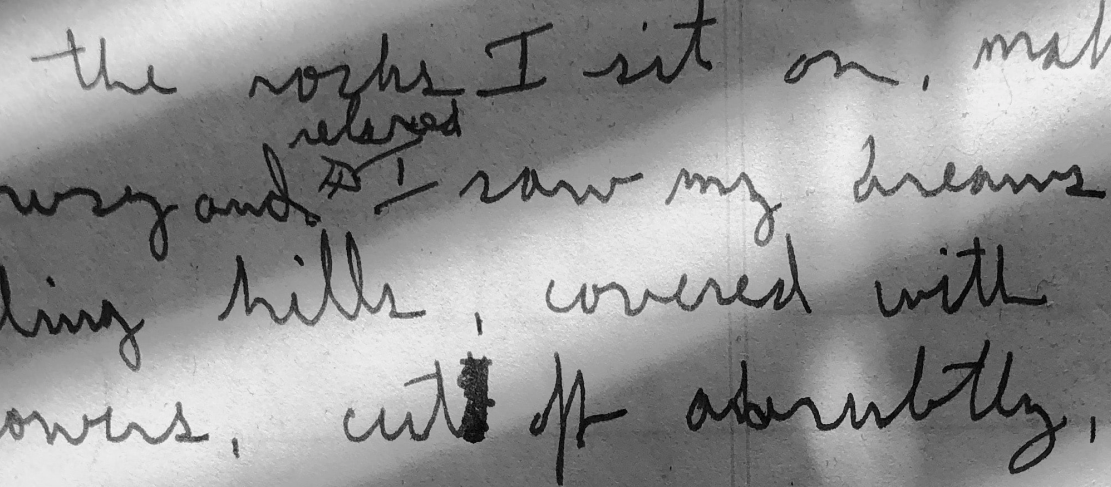 the rocks I sit on, mak
relaxed
wsy and I saw my dreams
ling hills, covered with
owers, cut off abrubtly,